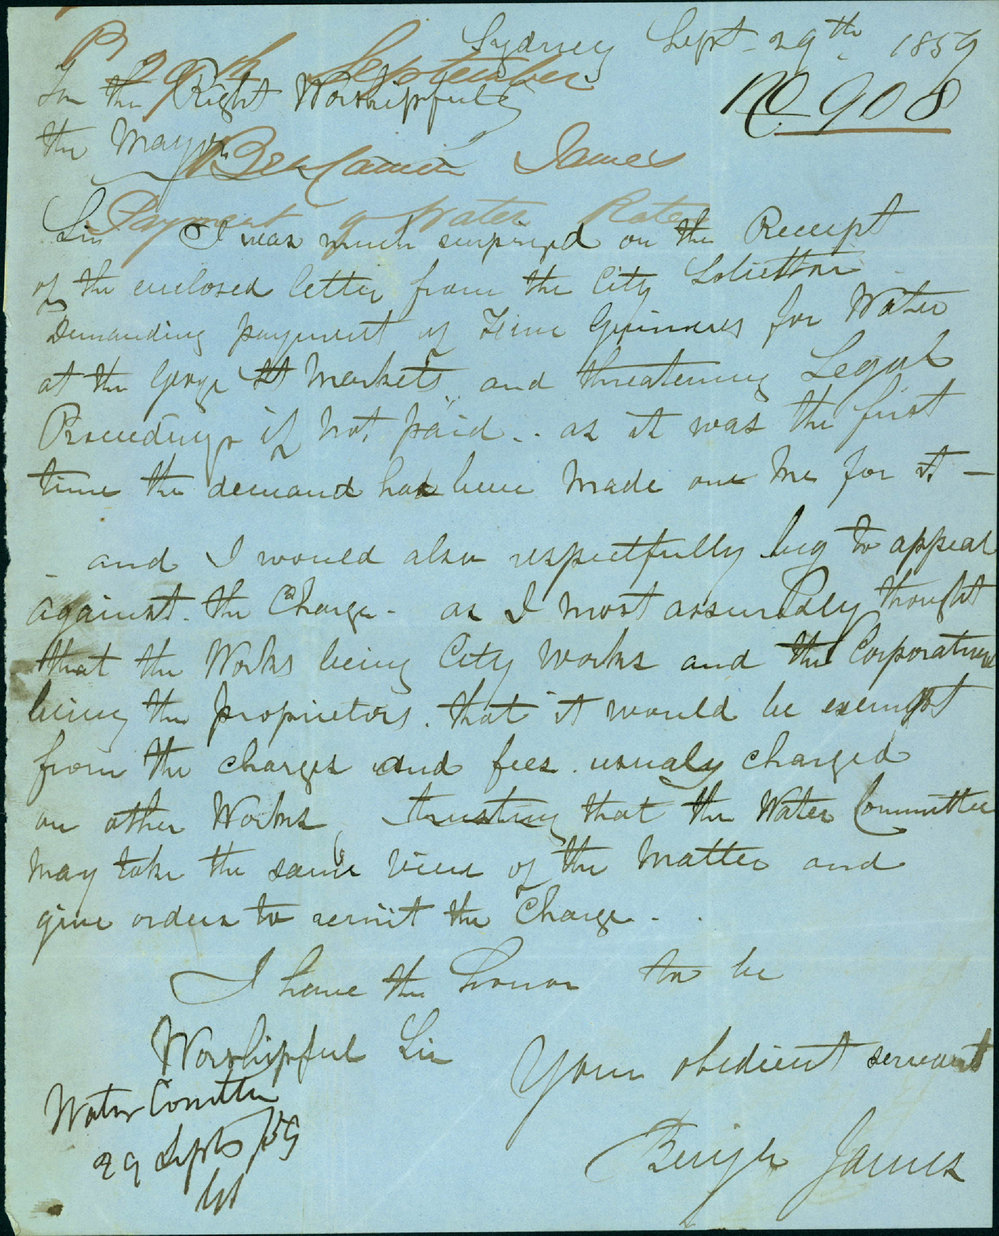 Sydney Sept 29th 1859
R 29th September
To the Right Worshipfull
No 908
the Mayor
Benjamin James
Payment of Water Rates
Sir I was much surprized on the Receipt
of the enclosed letter from the City Solicittor
Demanding payment of Guineas for Water
at the George St Markets and threatening Legal
Proceedings if Not paid .. as it was the first
time the demand had been made on me for it -
and I would also respectfully beg to appeal
against the Charge - as I most assuredly thought
that the Works being City Works and the Corporation
being the proprietors. that it would be exempt
from the charges and fees usualy charged
on other Works, trusting that the Water Committee
may take the same view of the Matter and
give orders to remit the Charge - .
I have the honor to be
Worshipful Sir
Your obedient servant
Water Comttee
29 Sept /59
Benjn James